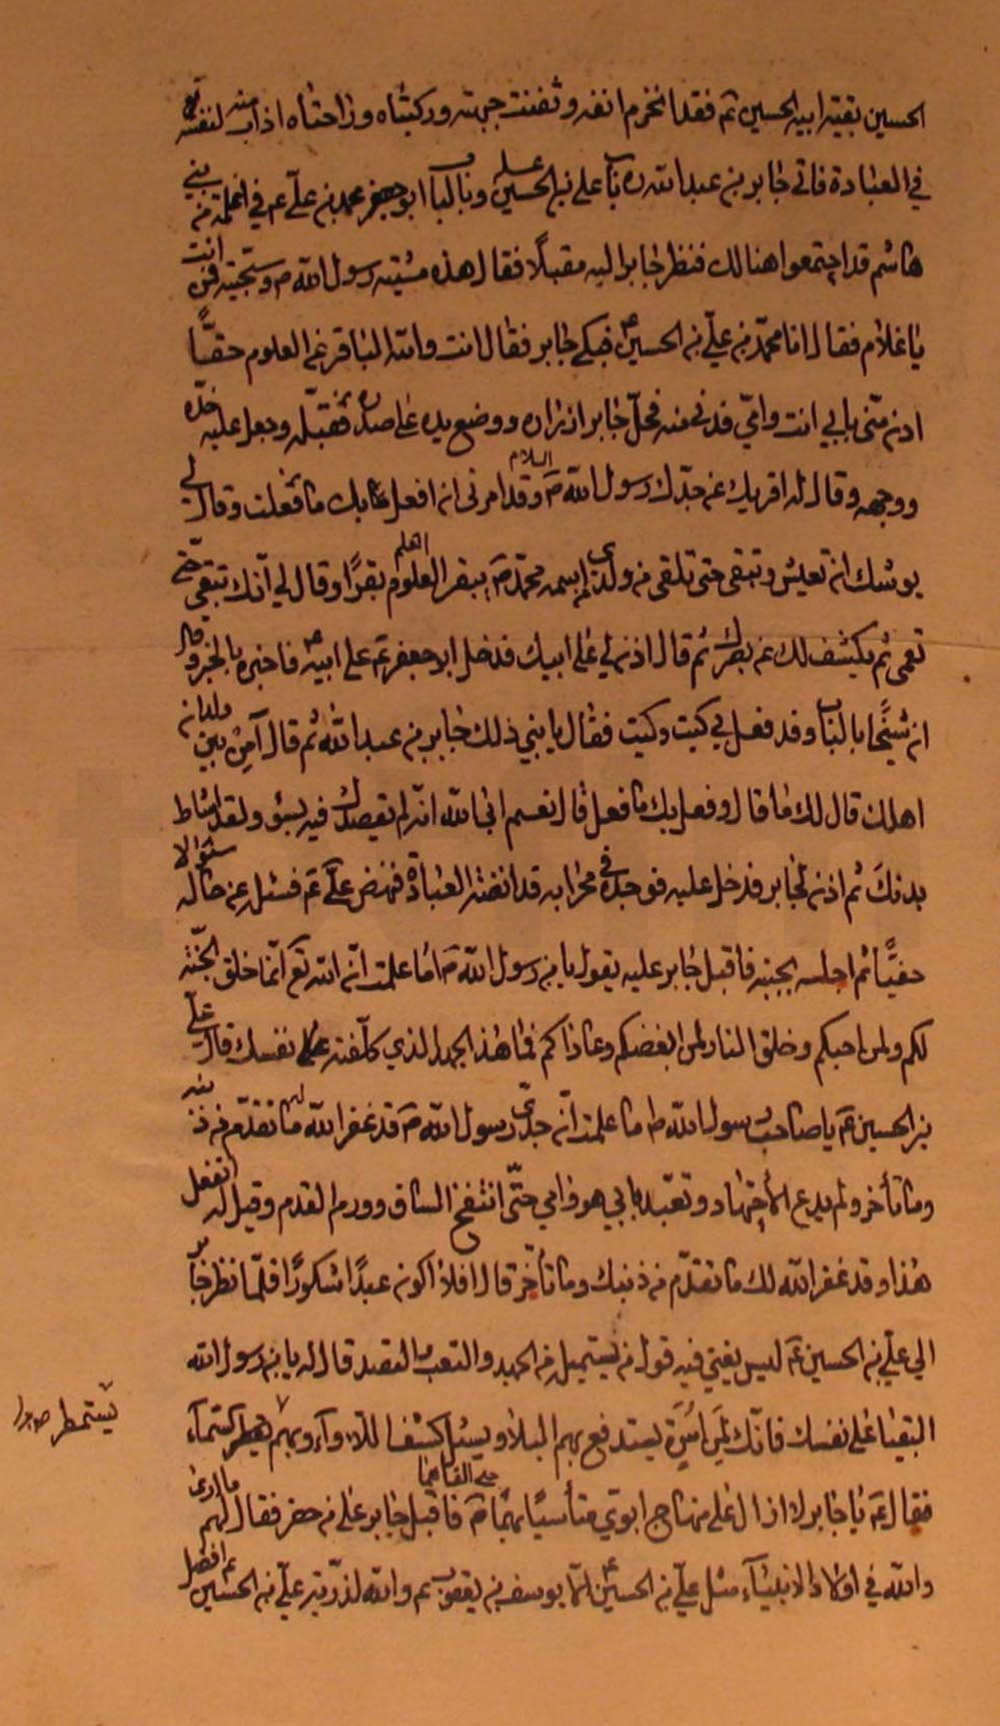 الحسين بقية ابيه الحسين ع‍م فقد انخرم انفه وثفنت جبهته وركبتاه وراحتاه اذاب منه لنفسه
في العبادة فاتى جابر بن عبدالله ره باب علي بن الحسين ع وبالباب ابو جعفر محمد بن علي ع في اغيلمة من بني
هاشم قد اجتمعوا هنالك فنظر جابر اليه مقبلًا فقال هذه مشية رسول الله ص وسجيته فمن انت
يا غلام فقال انا محمّد بن علي بن الحسين ع فبكى جابر فقال انت والله الباقر عن العلوم حقًّا
ادن منّي بابي انت وامّي فدنى منه فحلّ جابر ازراره ووضع يده على صدره فقبّله وجعل عليه خدّه
ووجهه وقال له اقريك عن جدّك رسول الله ص السلام وقد امرني ان افعل بك ما فعلت وقال لي
يوشك ان تعيش وتبقى حتى تلقى من ولدي من اسمه محمّد ص يبقر العلوم العلم بقرًا وقال لي انّك تبقى حتّى
تعمى ثم يكشف لك عن بصرك ثم قال ائذن لي على ابيك فدخل ابو جعفر ع‍م على ابيه ع فاخبره بالخبر وقال
ان شيخًا بالباب وقد فعل بي كيت وكيت فقال يا بني ذلك جابر بن عبدالله ثم قال آمن بين ولدان
اهلك قال لك ما قال وفعل بك ما فعل قال نعم انا لله انّه لم يقصدك فيه بسوء ولقد اشاط
بدمك ثم اذن لجابر فدخل عليه فوجده في محرابه قد انضته العبادة فنهض علي ع‍م فسئل عن حاله سئوالا
حفيًّا ثم اجلسه بجنبه فاقبل جابر عليه يقول يا بن رسول الله ص اما علمت انّ الله تع‍ انّما خلق الجنّة
لكم ولمن احبكم وخلق النار لمن ابغضكم وعاداكم فما هذا الجهد الذي كلّفته نفسك قال علي
بن الحسين ع‍م يا صاحب رسول الله ص ما علمت انّ جدّي رسول الله ص قد غفر الله له ما تقدّم من ذنبه
وما تأخر ولم يدع الاجتهاد وتعبّد بابي هو وامي حتّى انتفخ الساق وورم القدم وقيل له اتفعل
هذا وقد غفر الله لك ما تقدّم من ذنبك وما تأخّر قال افلا اكون عبدًا شكورًا فلمّا نظر جابر
الى علي بن الحسين ع‍م ليس يغني فيه قول من يستميل من الجهد والتعب الى القصد قال له يا بن رسول الله
البقيا على نفسك فانّك لمن اسرة يستدفع بهم البلاء ويسئل كشف اللاواء وبهم السماء
يستمطر
فقال ع‍م يا جابر لا ازال على منهاج ابوي متأسيًا بهما ص حتى القاهما فاقبل جابر على من حضر فقال لهم ما ارى
والله في اولاد الانبياء مثل علي بن الحسين ع الّا يوسف بن يعقوب ع‍م والله لذريّة علي بن الحسين ع افضل